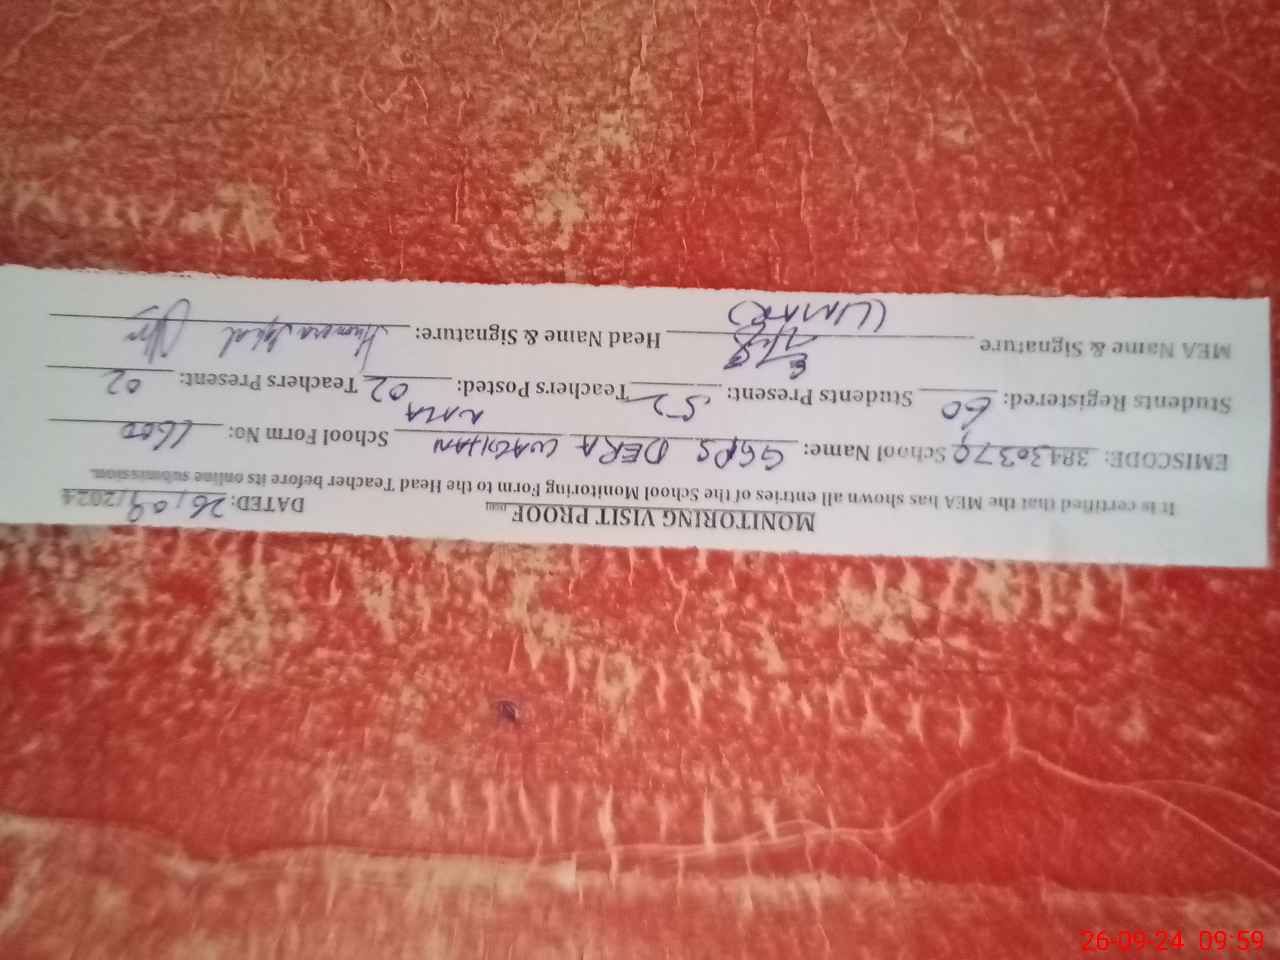 MONITORING VISIT PROOF DATED: 26/09/2024
It is certified that the MEA has shown all entries of the School Monitoring Form to the Head Teacher before its online submission.
EMISCODE: 38430370 School Name: GGPS DERA WAGHAN School Form No: 1600
Students Registered: 60 Students Present: 52 Teachers Posted: 02 Teachers Present: 02
MEA Name & Signature Head Name & Signature: Humera Iqbal
(UMAR)
26-09-24 09:59